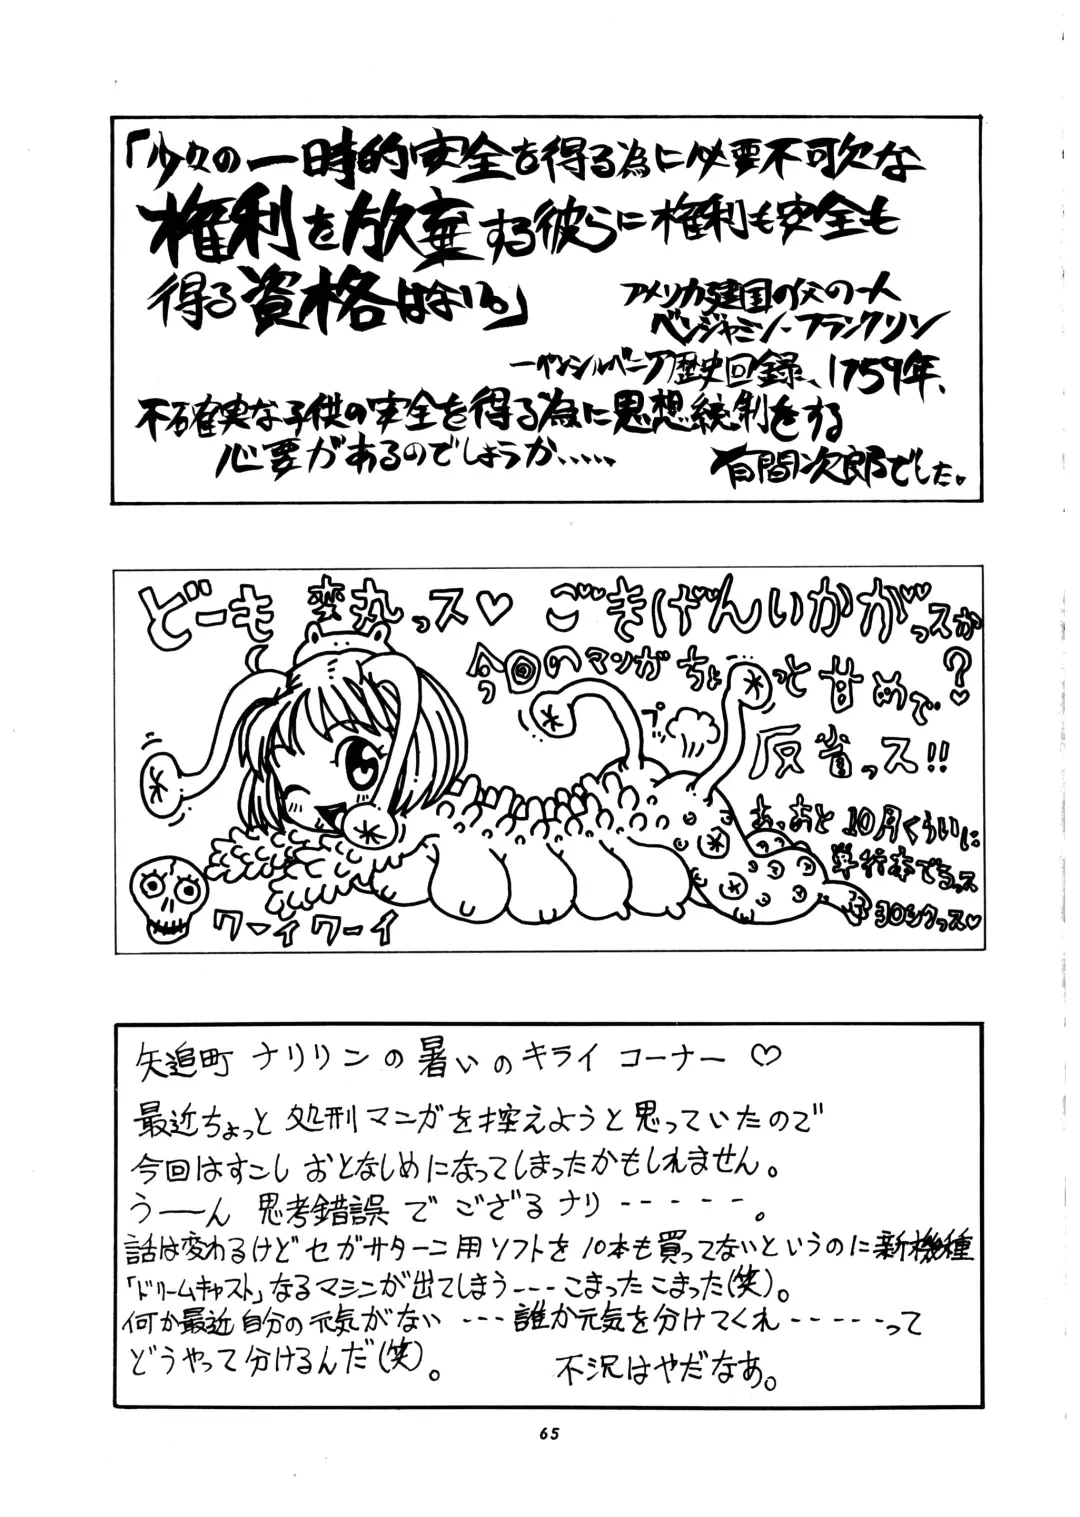 「少々の一時的安全を得る為に必要不可欠な
権利を放棄する彼らに権利も安全も
得る資格はない。」
アメリカ建国の父の一人
ベンジャミン・フランクリン
―ペンシルベニア歴史回録、1759年、
不確実な子供の安全を得る為に思想統制をする
必要があるのでしょうか.....
有間次郎でした。
どーも変丸っス♡ ごきげんいかがっスか?
今回のマンガちょっと甘めで♡
反省っス!!
プ
あ、あと10月くらいに
単行本でるっス
ヨロシクっス♡
ワーイワーイ
矢追町ナリリンの暑いのキライコーナー♡
最近ちょっと処刑マンガを控えようと思っていたので
今回はすこしおとなしめになってしまったかもしれません。
うーん 思考錯誤でござるナリ-----。
話は変わるけどセガサターン用ソフトを10本も買ってないというのに新機種
「ドリームキャスト」なるマシンが出てしまう---こまったこまった(笑)。
何か最近自分の元気がない ---誰か元気を分けてくれ-----って
どうやって分けるんだ(笑)。 不況はやだなあ。
65